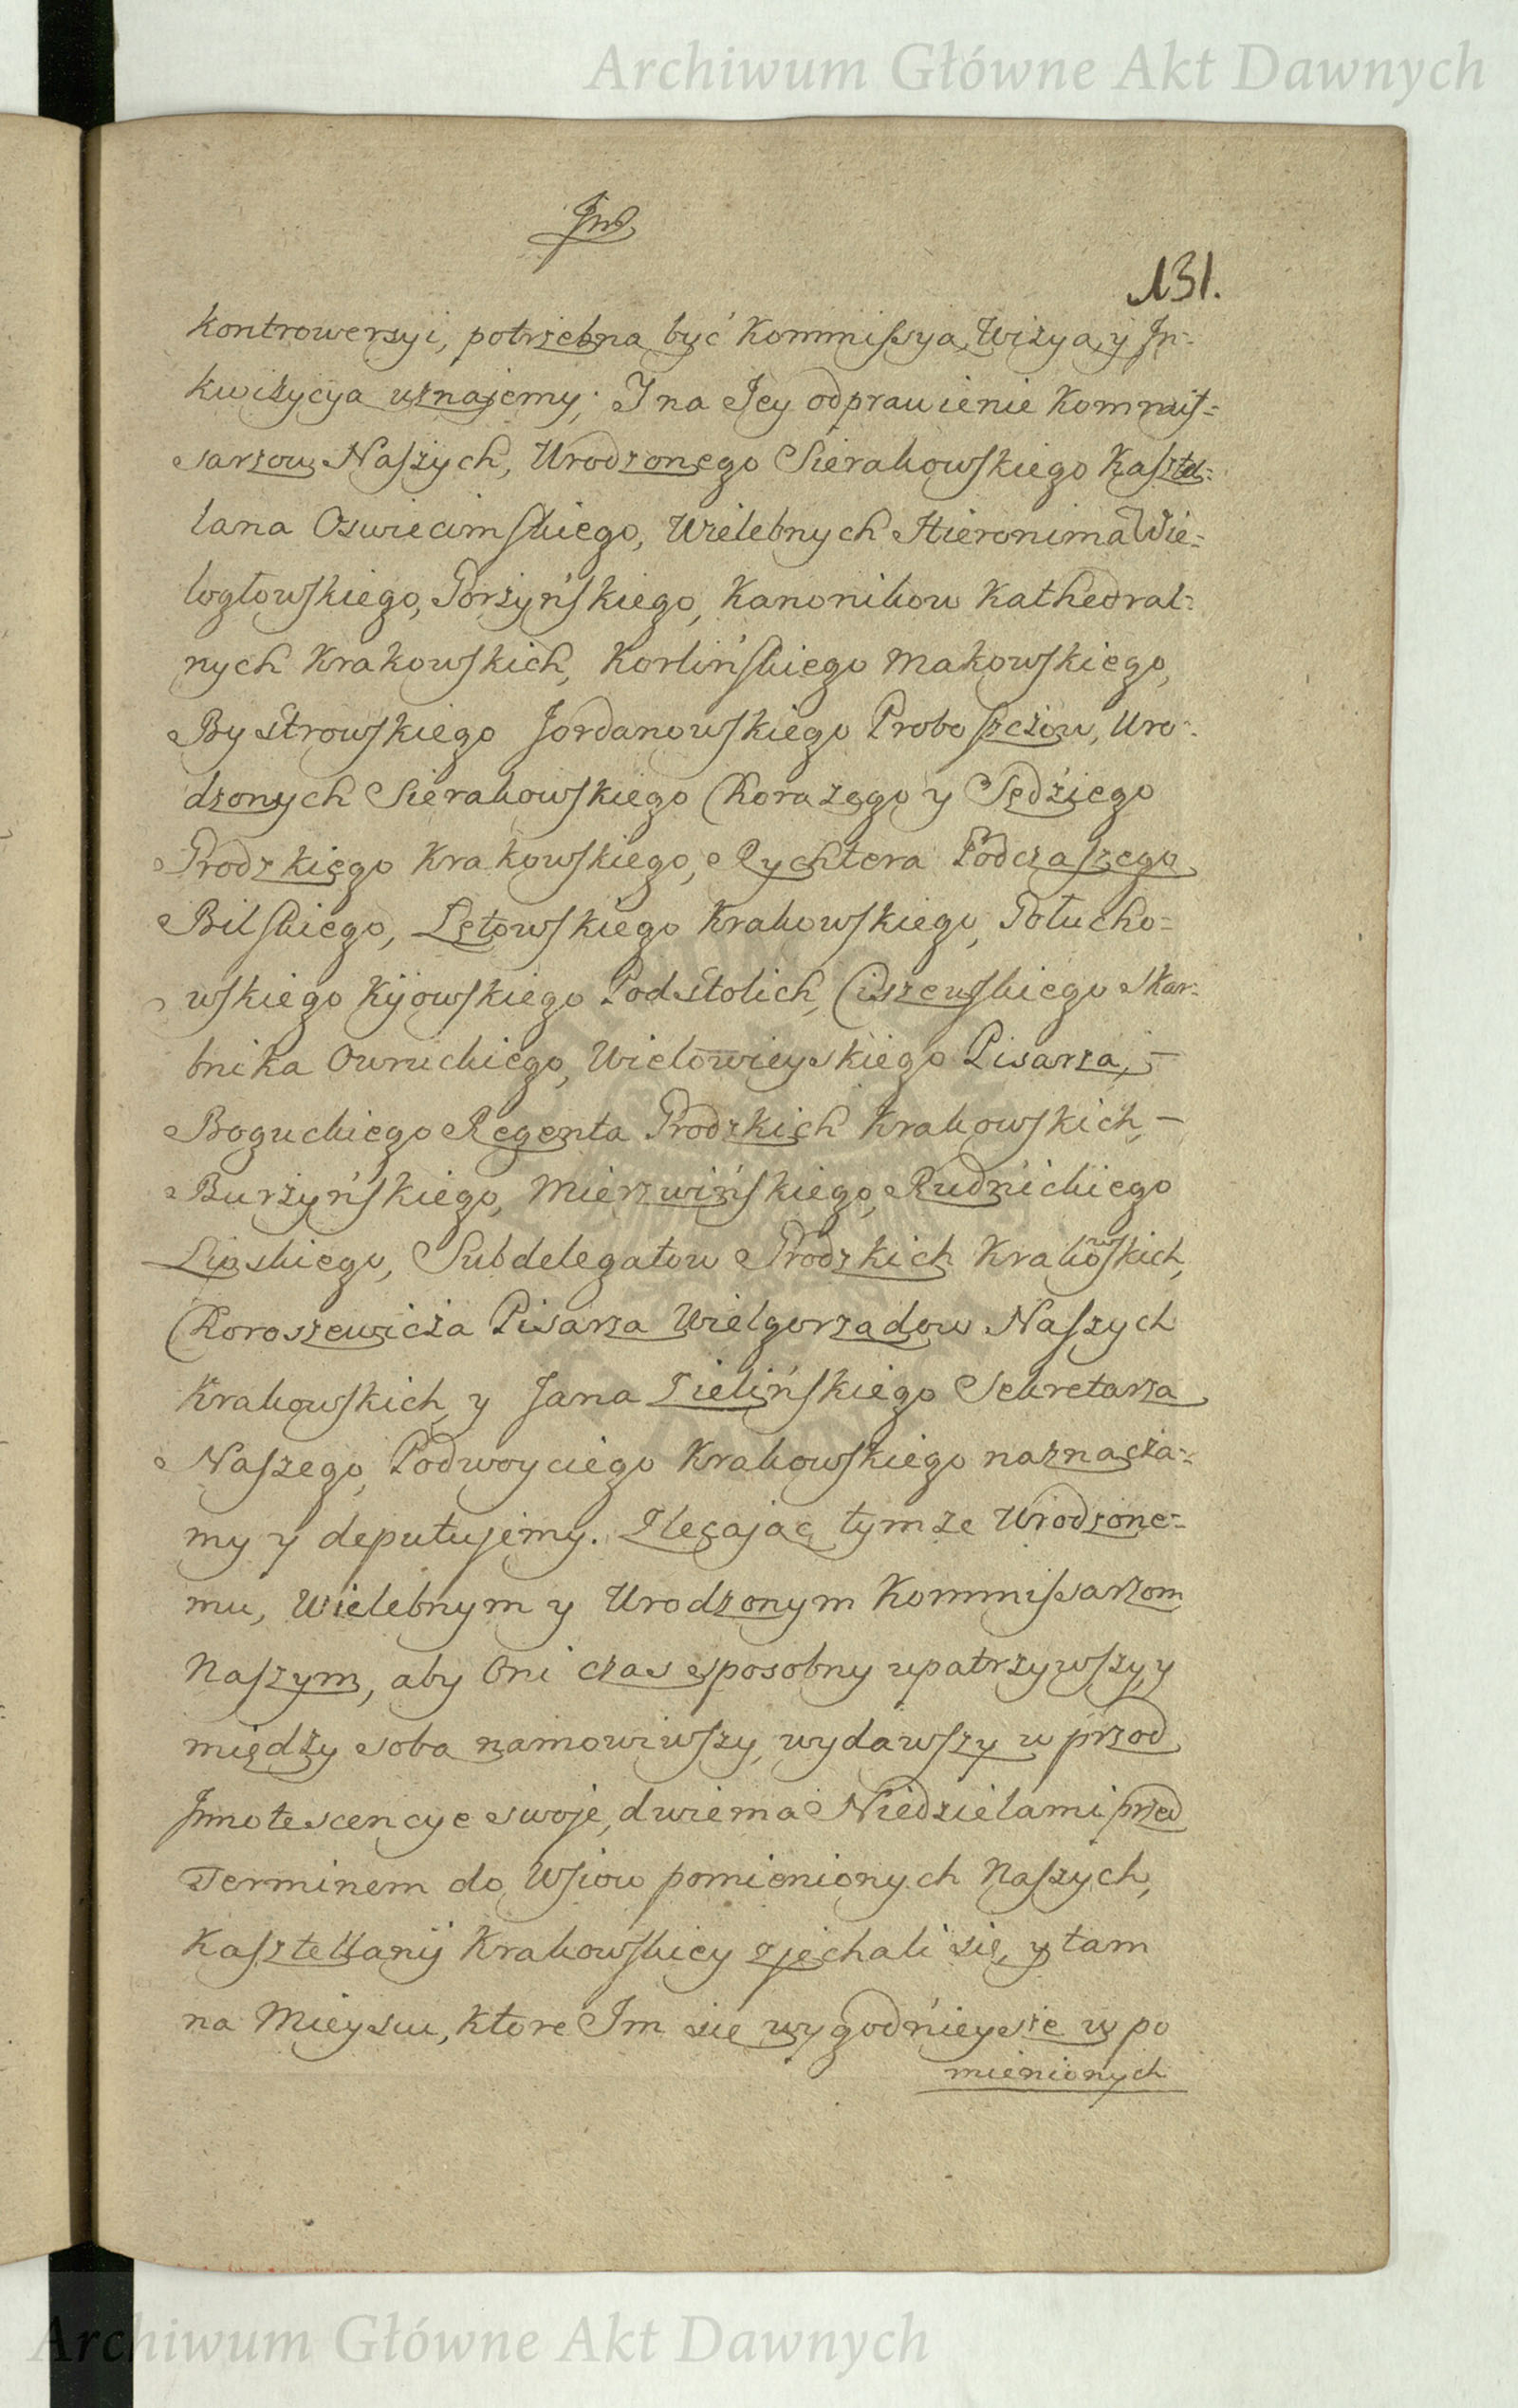 Archiwum Główne Akt Dawnych
131.
kontrowersyi, potrzebna być Kommissya, Wizya, y In-
kwizycya uznajemy; I na Jey odprawienie Kommis-
sarzow Naszych, Urodzonego Sierakowskiego Kaszte-
lana Oswiecimskiego, Wielebnych Hieronima Wie-
logłowskiego, Gorzyńskiego, Kanonikow Kathedral-
nych Krakowskich, Korlińskiego Makowskiego,
Bystrowskiego Jordanowskiego Proboszczow, Uro-
dzonych Sierakowskiego Chorązego y Sędziego
Grodzkiego Krakowskiego, Rychtera Podczaszego
Bilskiego, Lętowskiego Krakowskiego, Głucho-
wskiego Kijowskiego Podstolich, Ciszewskiego Skar-
bnika Owruckiego, Wielowieyskiego Pisarza, –
Boguckiego Regenta Grodzkich Krakowskich, –
Burzyńskiego, Mierzwińskiego, Rudnickiego
Lipskiego, Subdelegatow Grodzkich Krakowskich,
Choroszewicza Pisarza Wielgorządow Naszych
Krakowskich, y Jana Zielińskiego Sekretarza
Naszego, Podwoyciego Krakowskiego naznacza-
my y deputujemy. Zlecając tymze Urodzone-
mu, Wielebnym y Urodzonym Kommissarzom
Naszym, aby Oni czas sposobny upatrzywszy, y
między sobą namowiwszy, wydawszy w przod
Innotescencye swoje, dwiema Niedzielami przed
Terminem do Wsiow pomienionych Naszych,
Kasztellanij Krakowskiey zjechali się, y tam
na Mieyscu, ktore Im się wygodnieysze w po
mienionych
Archiwum Główne Akt Dawnych